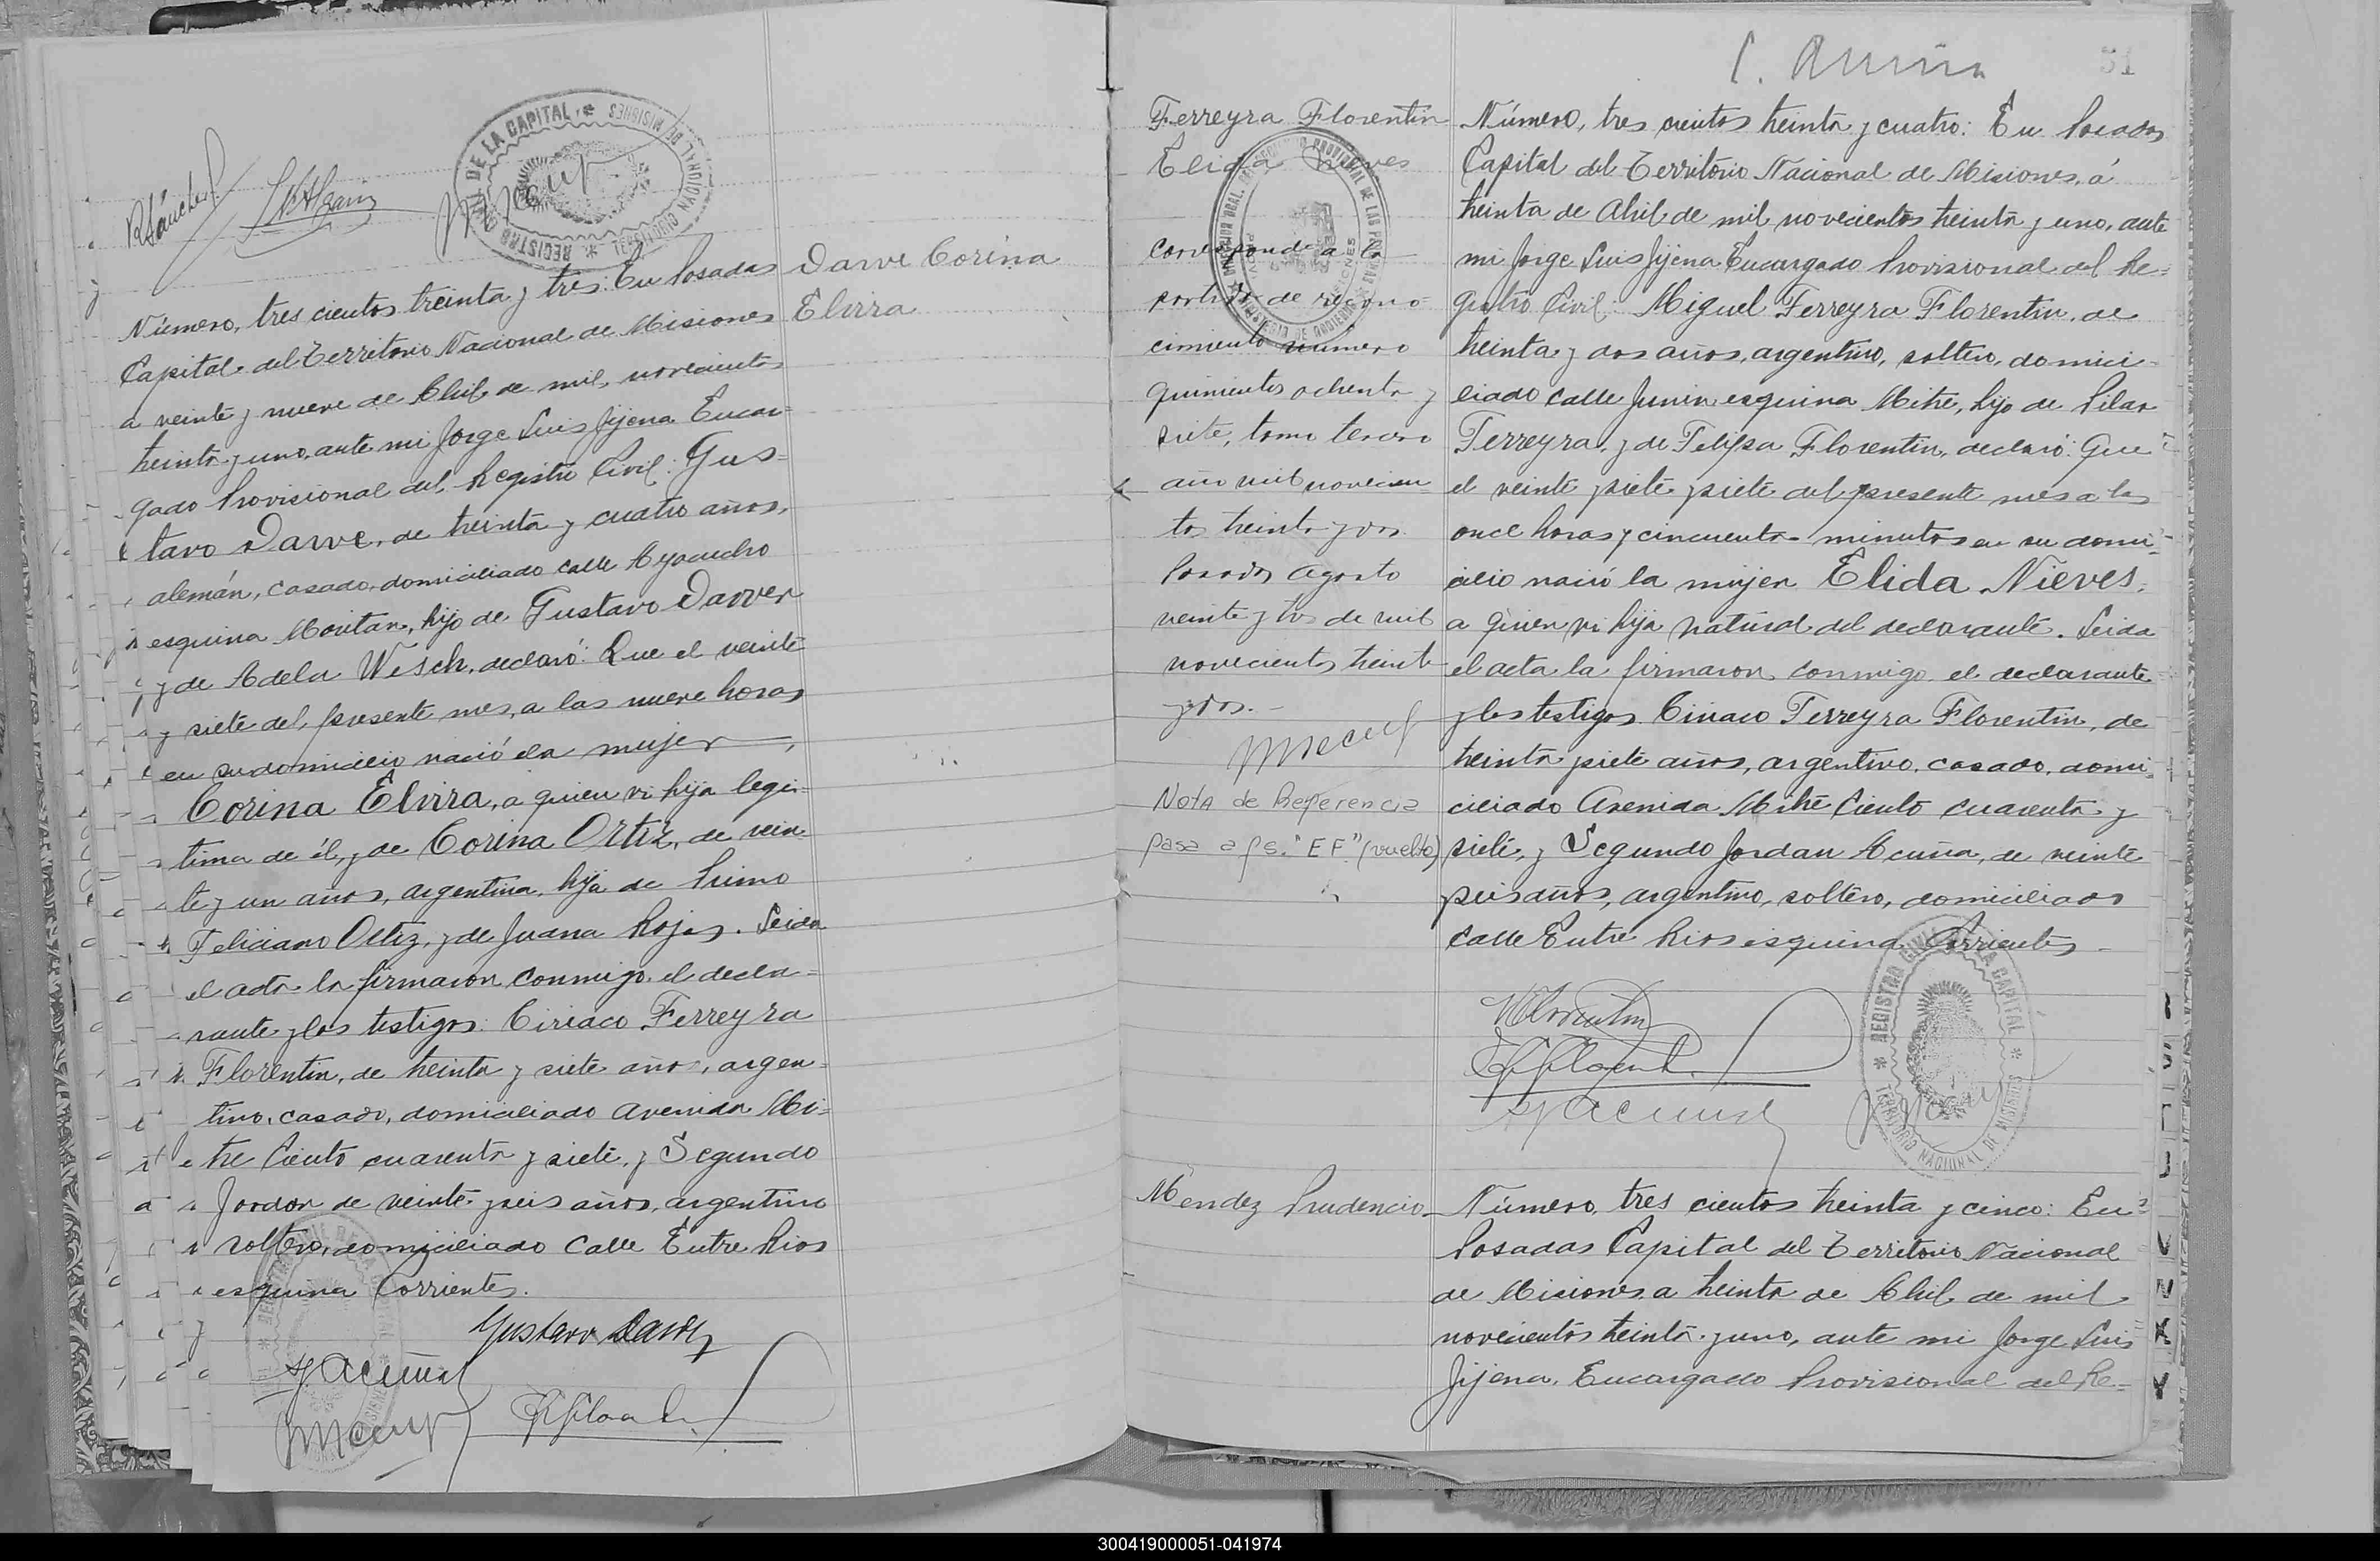 REGISTRO CIVIL DE LA CAPITAL * TERRITORIO NACIONAL DE MISIONES *
Número, tres cientos treinta y tres: En Posadas
Capital del Territorio Nacional de Misiones
a veinte y nueve de Abril de mil novecientos
treinta y uno, ante mi Jorge Luis Jijena Encar=
gado Provisional del Registro Civil: Gus=
tavo Darve, de treinta y cuatro años,
alemán, casado, domiciliado calle Ayacucho
esquina, hijo de Gustavo Darver
y de Adela Wesch, declaró: Que el veinte
y siete del presente mes, a las nueve horas
en su domicilio nació la mujer
Corina Elvira, a quien vi hija legi=
tima de él, y de Corina Ortiz, de vein
te y un años, argentina, hija de Primo
Feliciano Ortiz, y de Juana Rojas. Leida
el acta la firmaron conmigo el decla=
rante y los testigos: Ciriaco Ferreyra
Florentin, de treinta y siete años, argen=
tino, casado, domiciliado Avenida Mi=
tre Ciento cuarenta y siete, y Segundo
Jordan de veinte y seis años, argentino
soltero, domiciliado Calle Entre Rios
esquina Corrientes.
Gustavo
Acuña
Darve Corina
Elvira
51
C. Acuña
Ferreyra Florentin
Elida Nieves
Corresponde a la
partida de recono=
cimiento número
quinientos ochenta y
siete, tomo tercero
año mil novecien
tos treinta y dos.
Posadas Agosto
veinte y tres de mil
novecientos treinta
y dos.-
Nota de Referencia
pasa a fs. "EF" (vuelto)
Número, tres cientos treinta y cuatro: En Posadas
Capital del Territorio Nacional de Misiones, á
treinta de Abril de mil novecientos treinta y uno, ante
mi Jorge Luis Jijena Encargado Provisional del Re=
gistro Civil: Miguel Ferreyra Florentin, de
treinta y dos años, argentino, soltero, domici=
liado calle Junin esquina Mitre, hijo de Pilar
Ferreyra, y de Felipa Florentin, declaró: Que
el veinte y siete y siete del presente mes a las
once horas y cincuenta minutos en su domi=
cilio nació la mujer Elida Nieves,
a quien vi hija natural del declarante. Leida
el acta la firmaron conmigo el declarante
y los testigos Ciriaco Ferreyra Florentin, de
treinta y siete años, argentino, casado, domi=
ciliado Avenida Mitre Ciento cuarenta y
siete, y Segundo Jordan Acuña, de veinte
y seis años, argentino, soltero, domiciliado
calle Entre Rios esquina Corrientes.
Acuña
REGISTRO CIVIL DE LA CAPITAL * TERRITORIO NACIONAL DE MISIONES *
Mendez Prudencio
Número, tres cientos treinta y cinco: En
Posadas Capital del Territorio Nacional
de Misiones a treinta de Abril de mil
novecientos treinta y uno, ante mi Jorge Luis
Jijena, Encargado Provisional del Re=
300419000051-041974